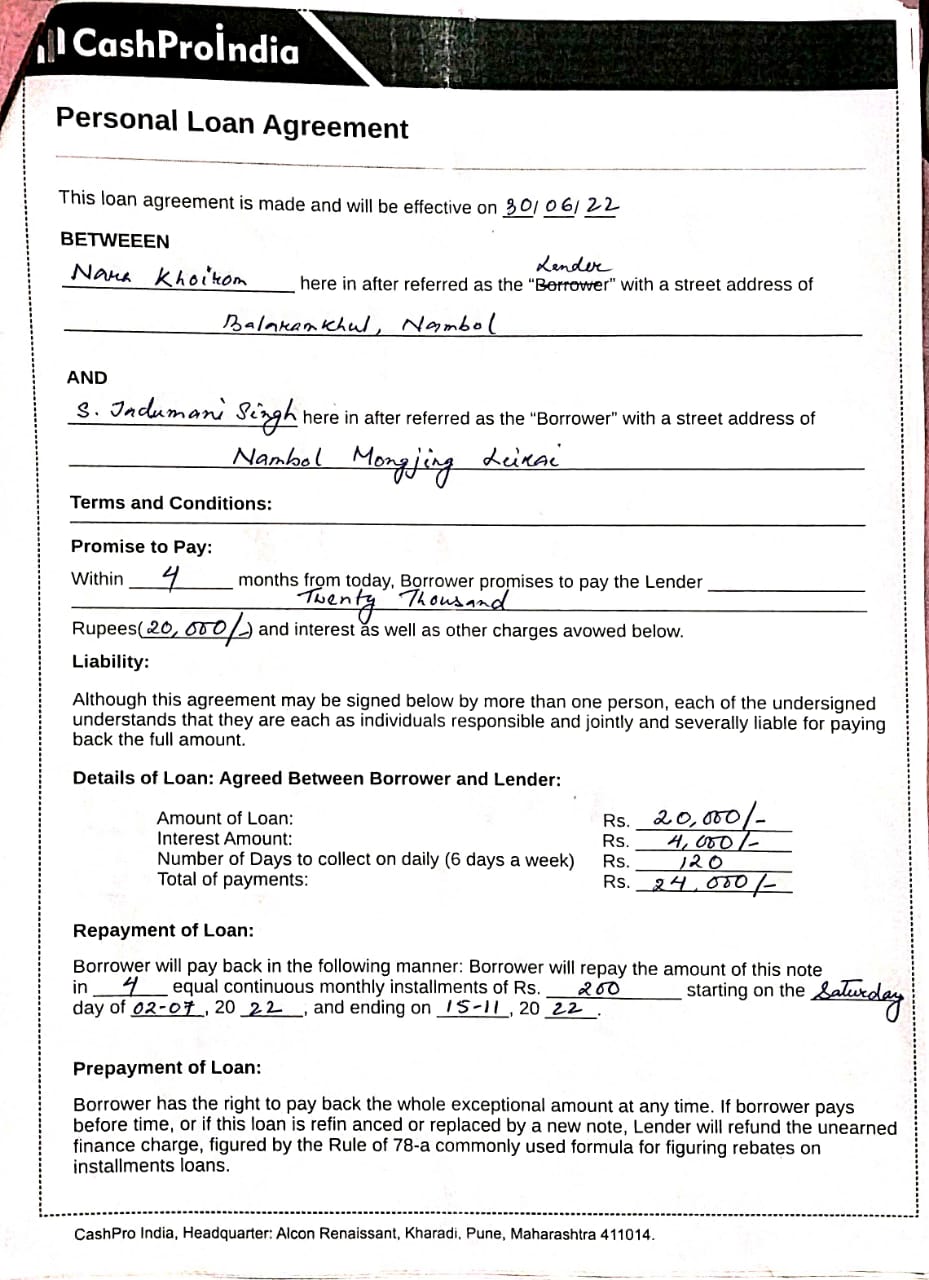 CashProIndia
Personal Loan Agreement
This loan agreement is made and will be effective on 30/06/22
BETWEEEN
Nara Khoirom here in after referred as the "Borrower" with a street address of
Lender
Balaramkhul, Nambol
AND
S. Indumani Singh here in after referred as the "Borrower" with a street address of
Nambol Mongjing Leikai
Terms and Conditions:
Promise to Pay:
Within 4 months from today, Borrower promises to pay the Lender
Twenty Thousand
Rupees(20,000/-) and interest as well as other charges avowed below.
Liability:
Although this agreement may be signed below by more than one person, each of the undersigned
understands that they are each as individuals responsible and jointly and severally liable for paying
back the full amount.
Details of Loan: Agreed Between Borrower and Lender:
Amount of Loan: Rs. 20,000/-
Interest Amount: Rs. 4,000/-
Number of Days to collect on daily (6 days a week) Rs. 120
Total of payments: Rs. 24,000/-
Repayment of Loan:
Borrower will pay back in the following manner: Borrower will repay the amount of this note
in 4 equal continuous monthly installments of Rs. 200 starting on the Saturday
day of 02-07, 20 22, and ending on 15-11, 20 22.
Prepayment of Loan:
Borrower has the right to pay back the whole exceptional amount at any time. If borrower pays
before time, or if this loan is refin anced or replaced by a new note, Lender will refund the unearned
finance charge, figured by the Rule of 78-a commonly used formula for figuring rebates on
installments loans.
CashPro India, Headquarter: Alcon Renaissant, Kharadi, Pune, Maharashtra 411014.